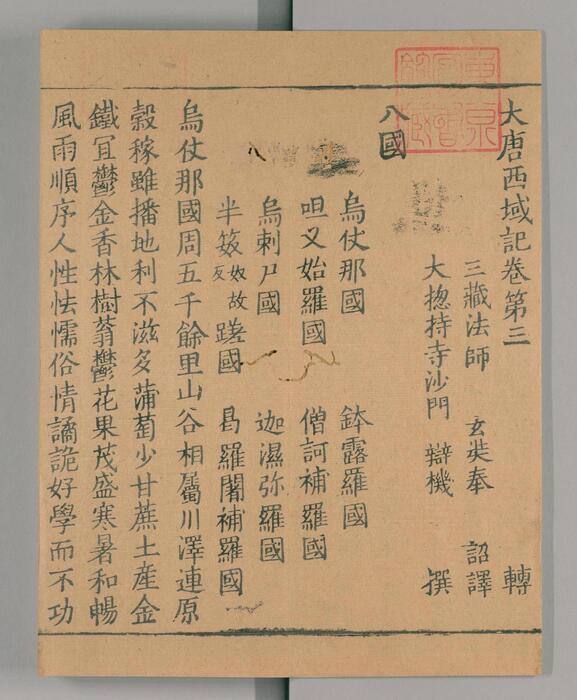 大唐西域記卷第三 轉
三藏法師 玄奘奉 詔譯
大揔持寺沙門 辯機 撰
八國
烏仗那國 鉢露羅國
呾叉始羅國 僧訶補羅國
烏剌尸國 迦濕弥羅國
半笯奴故反蹉國 曷羅闍補羅國
烏仗那國周五千餘里山谷相屬川澤連原
穀稼雖播地利不滋多蒲萄少甘蔗土産金
鐵冝鬱金香林樹蓊鬱花果茂盛寒暑和暢
風雨順序人性怯懦俗情譎詭好學而不功